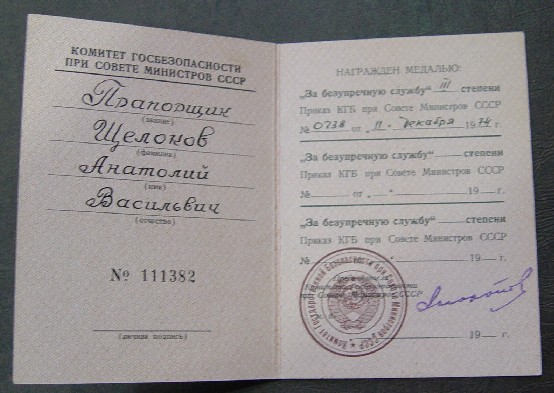 КОМИТЕТ ГОСБЕЗОПАСНОСТИ
ПРИ СОВЕТЕ МИНИСТРОВ СССР
Прапорщик
(звание)
Щелоков
(фамилия)
Анатолий
(имя)
Васильвич
(отчество)
№ 111382
(личная подпись)
НАГРАЖДЕН МЕДАЛЬЮ:
„За безупречную службу“ III степени
Приказ КГБ при Совете Министров СССР
№ 0738 от „11“ декабря 1974 г.
„За безупречную службу“ степени
Приказ КГБ при Совете Министров СССР
№ от „ “ 19 г.
„За безупречную службу“ степени
Приказ КГБ при Совете Министров СССР
№ 19 г.
19 г.